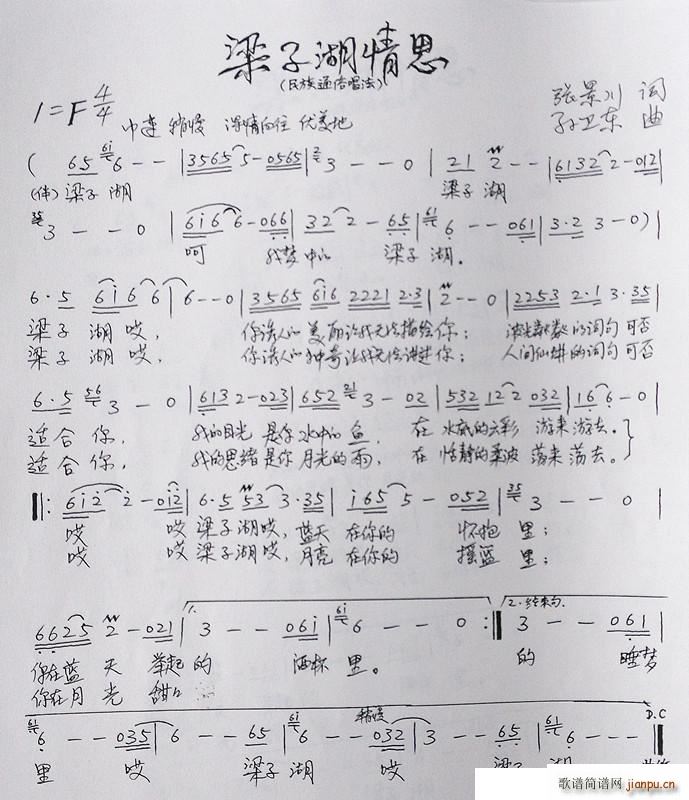 梁子湖情思
(民族通俗唱法)
1=F 4/4
中速 稍慢 深情向往 优美地
张景川 词
孙卫东 曲
( 65 6 - - | 3565 5 - 0565 | 3 - - 0 | 21 2 - - | 6132 2 - 012 |
(伴) 梁子湖 梁子湖
3 - - 0 | 6i66 - 066 | 32 2 - 65 | 6 - - 061 | 3·2 3 - 0) |
呵 我梦中的 梁子湖.
6·5 6i66 | 6 - - 0 | 3565 6i6 2221 2·3 | 2 - - 0 | 2253 2·1 3·35 |
梁子湖哎, 你诱人的美丽让我无法描绘你; 的词句可否
梁子湖哎, 你诱人的神奇让我无法 你; 人间仙 的词句可否
6·5 3 - 0 | 6132 2 - 023 | 652 3 - 02 | 532 12 2 032 | 16 6 - 0 |
适合你, 我的目光是你水中的鱼, 在水底的云彩游来游去.
适合你, 我的思绪是你月光的雨, 在恬静的柔波荡来荡去.
|: 6i2 2 - 0i2 | 6·5 53 3·35 | i65 5 - 052 | 3 - - 0 |
哎 哎梁子湖哎, 蓝天在你的怀抱里;
哎 哎梁子湖哎, 月亮在你的摇篮里;
6625 2 - 021 | 3 - - 06i | 6 - - 0 :| 3 - - 061 |
1. 2.结束句.
你在蓝天举起的 酒杯里。 的 睡梦
你在月光甜
稍慢 D.C
6 - - 035 | 6 - - 65 | 6 - - 032 | 3 - - 65 | 6 - - - |
里 哎 梁子湖 哎 梁子湖
歌谱简谱网
jianpu.cn